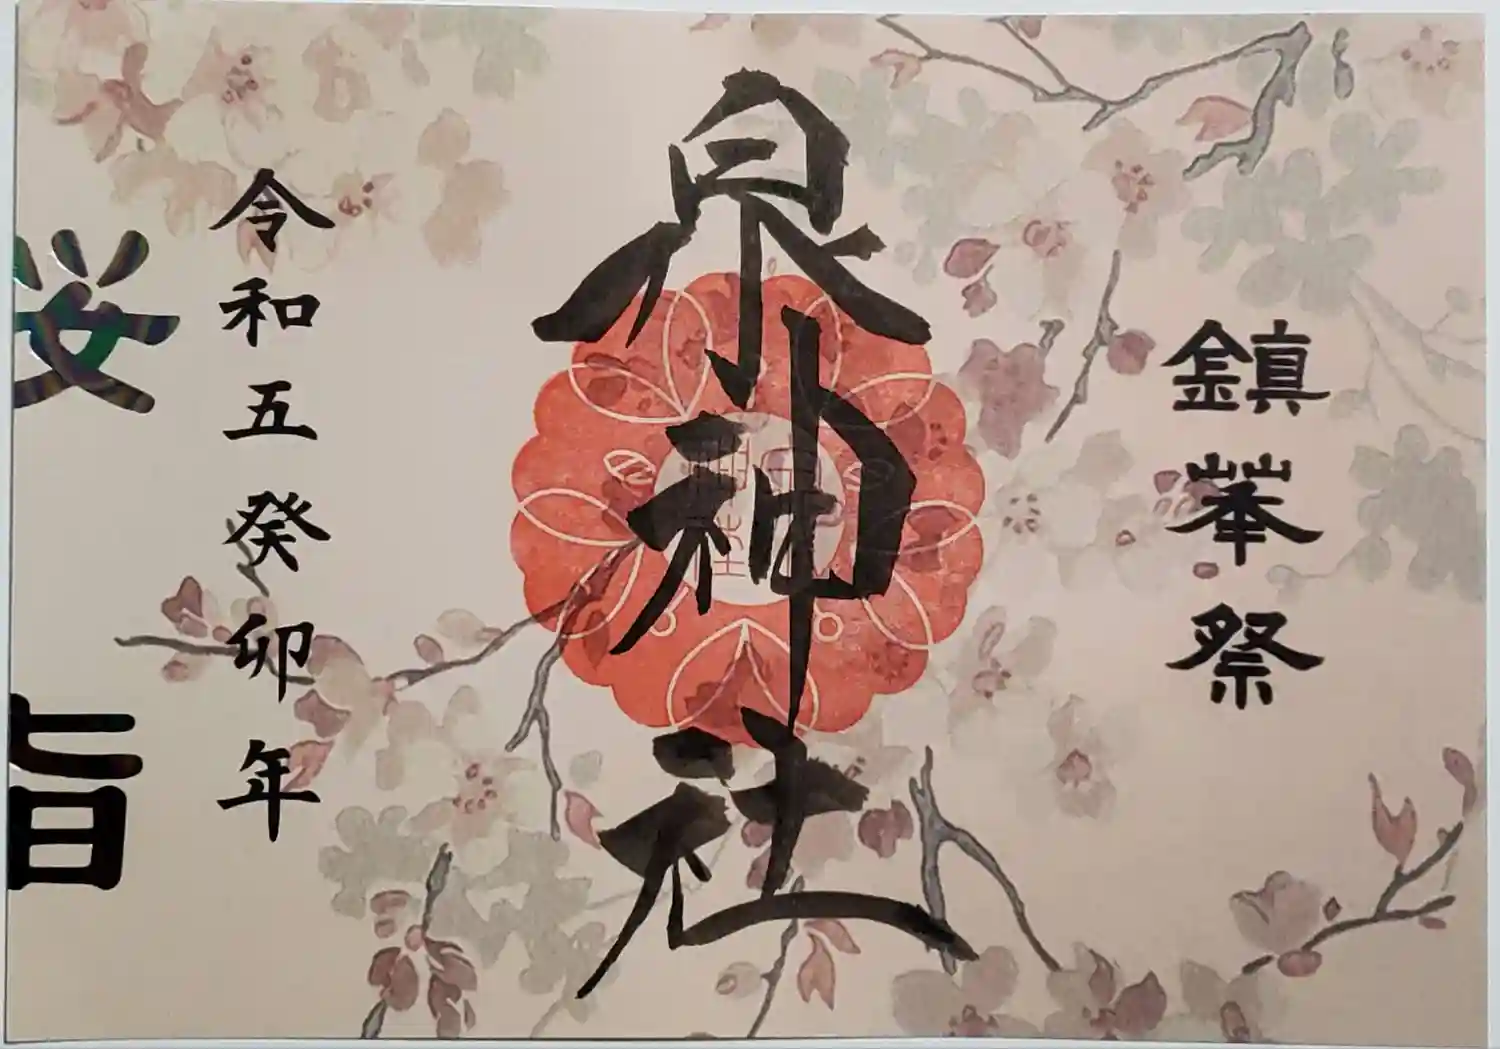 鎮華祭
泉神社
令和五癸卯年